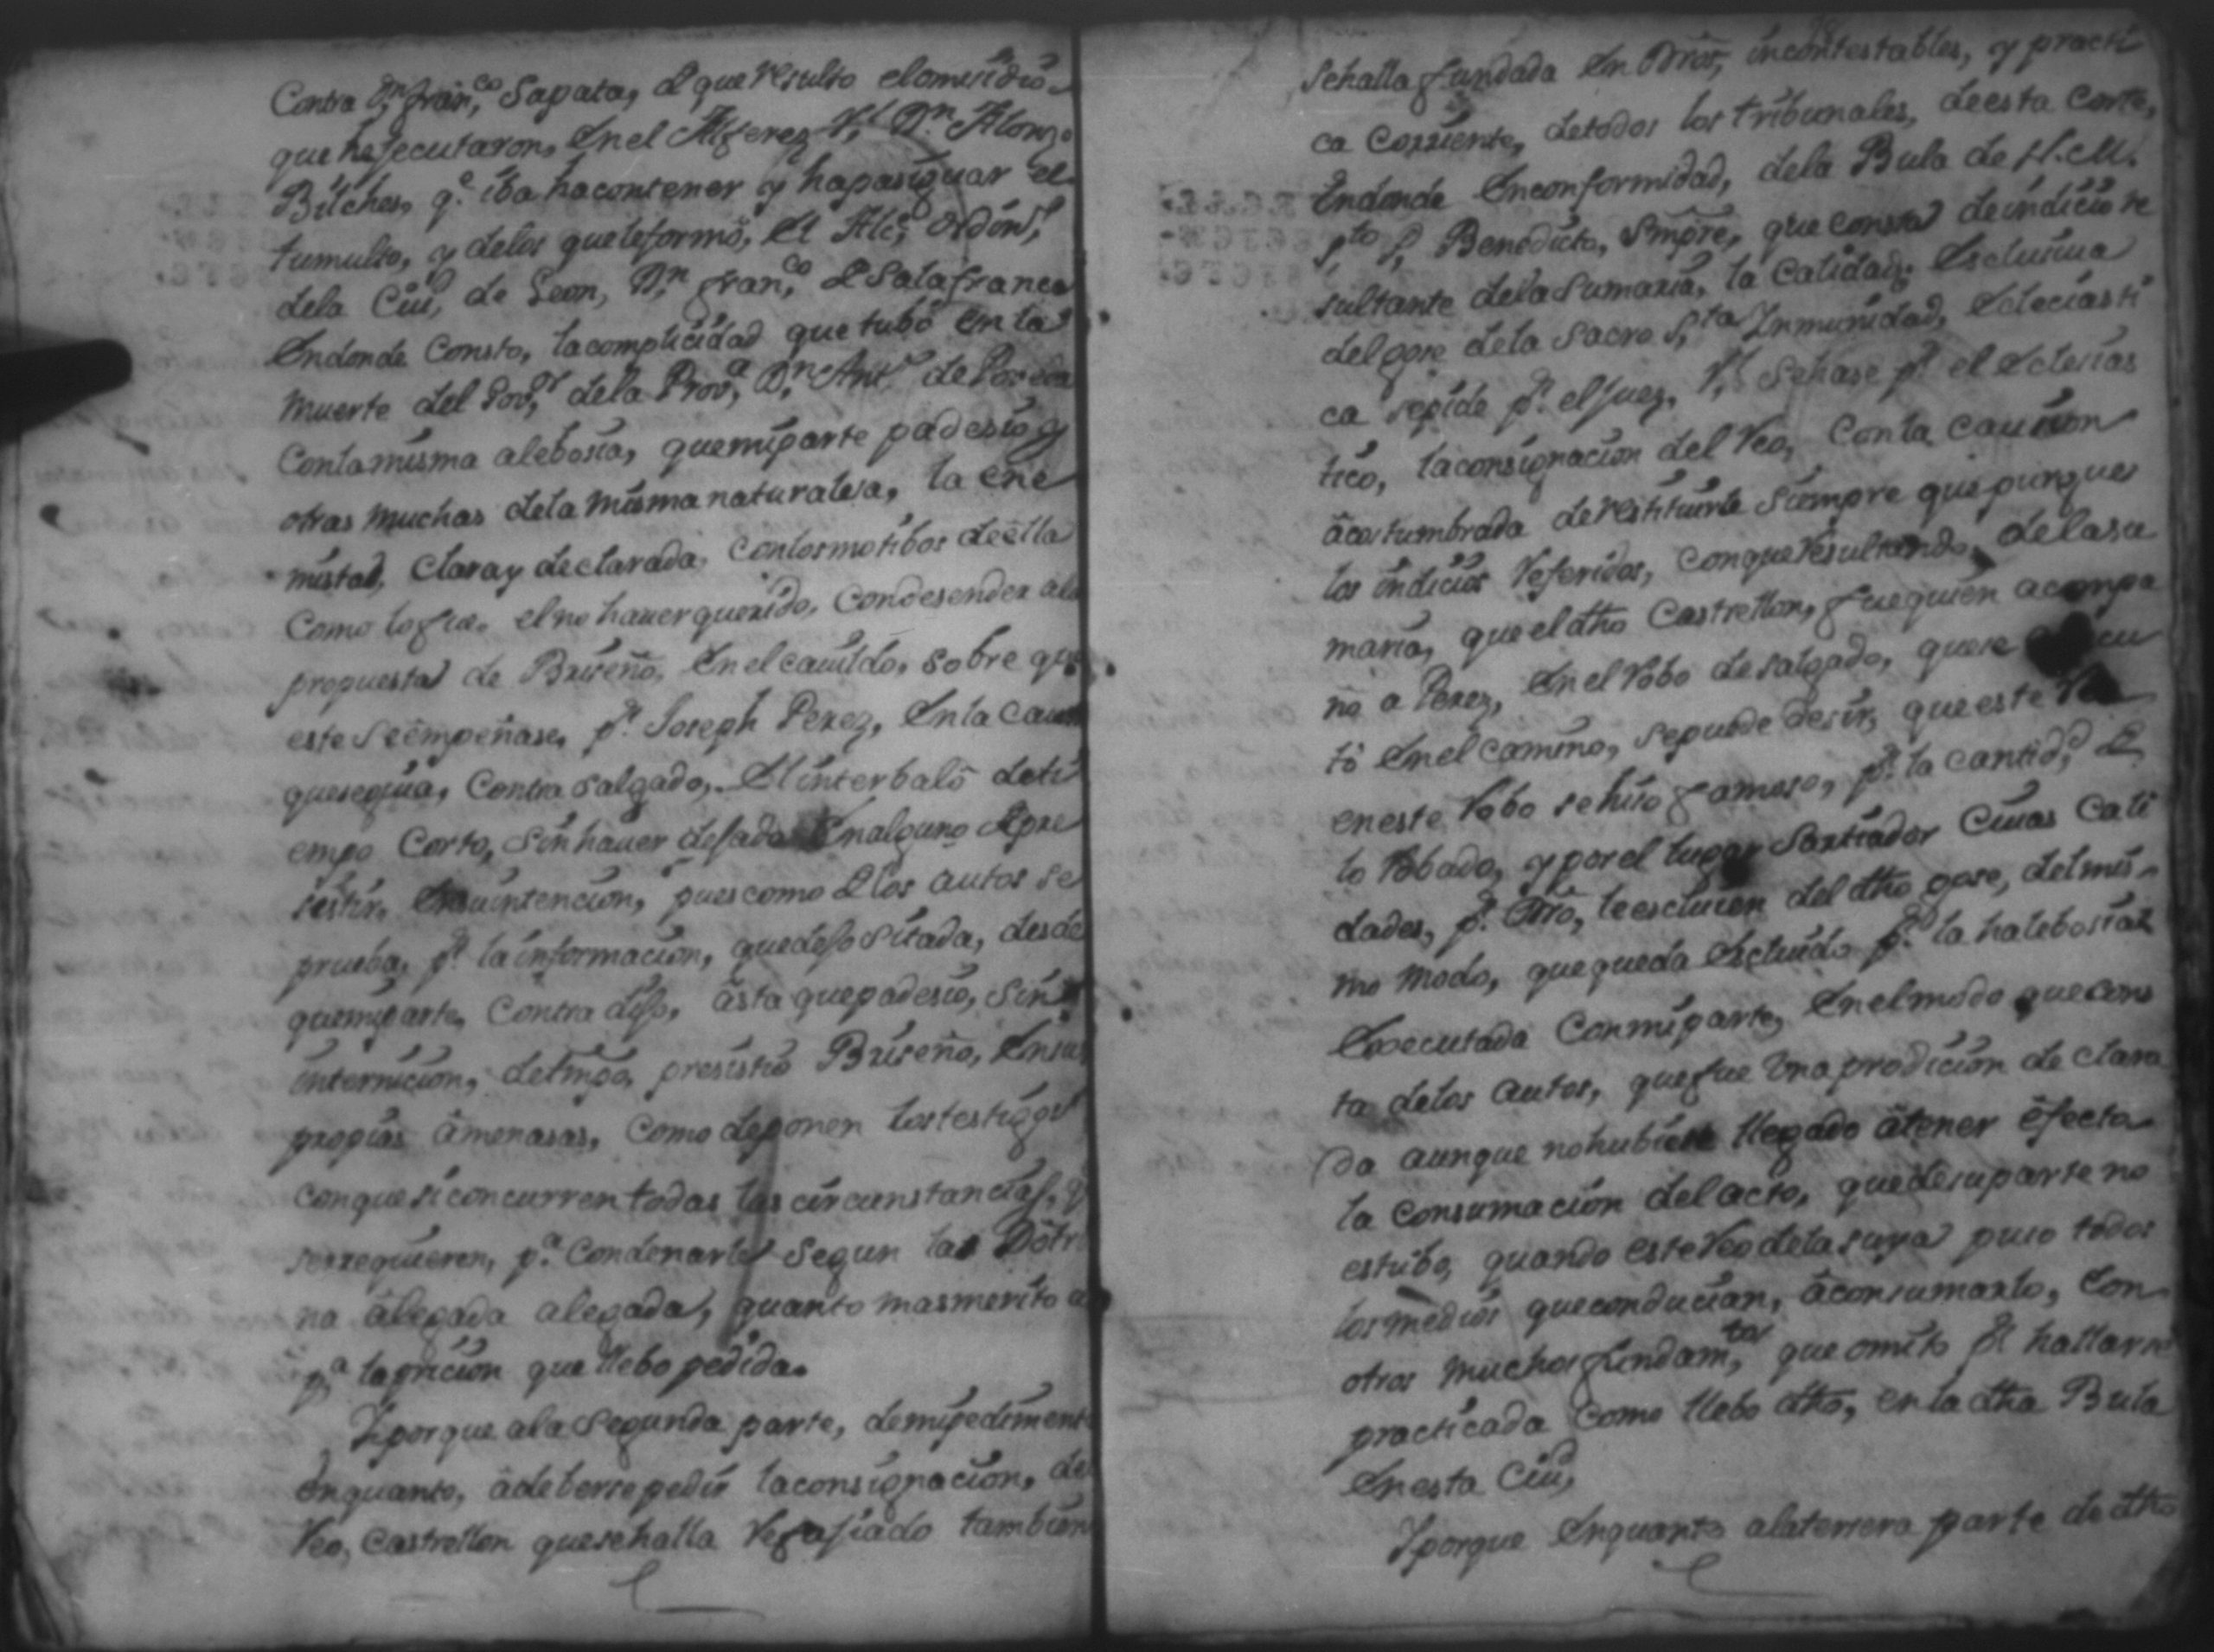 Contra Dn. Franco. Sapata, d que resulto elomisidio
que hejecutaron, En el Alferez Rl. Dn. Alonzo
Bilches, qe. iba hacontener y hapasiguar el
tumulto, y delos queleformó, el Alce. ordino.
dela Ciud. de Leon, Dn. Franco. d Salafranca
Endonde Consto, lacomplicidad quetubo en la
muerte del Govr. dela Prova. Dn. Anto. de
Contamisma alebosia, quemiparte padesio y
otras muchas dela misma naturalesa, la ene
mistad, Claray declarada, Conlosmotibos deélla
Como lo fue. elno hauerquerido, Condesender ala
propuesta de Briseño, En elcauildo, sobre que
este seémpeñase, pr. Joseph Perez, En la Causa
queseguia, Contra salgado,. El interbaló deti
empo Corto, sinhauer dejado Enalguno depre
sistir, Ensuintencion, puescomo d los autos se
prueba, pr. la informacion, quedejo sitada, desde
quemiparte, Contra dijo, ásta quepadesio, sin
internicion, detmpo, presistio Briseño, En sus
propias âmenasas, Como deponen los testigos
conque si concurren todas las circunstancias, q
serrequieren, pa. Condenarle segun las Dotri
na âlegada alegada, quanto masmerito a
pa. lapricion que llebo pedida.
Yporque ala segunda parte, demipediment
Enquanto, âdeberse pedir laconsignacion, de
Reo, Castrellon quesehalla Refujiado tambien
sehalla fundada En incontestables, y practi
ca Corriente, detodos los tribunales, deesta Corte,
Endonde Enconformidad, dela Bula de N.M.
Sto. P. Benedicto, Smpre, que consta deindicio re
sultante dela sumaria, la Calidad, Escluciua
delgose dela Sacro Sta. Inmunidad, Ecleciasti
ca sepide pr. eljuez, Rl. Sehase pr. el Eclecias
tico, laconsignacion del Reo, Con la Caucion
âcostumbrada derestituirle siempre quepurgue
los indicios Referidos, Conqueresultando, delasu
maria, que el dho Castrellon, fuequien acompa
ño a Perez, En el Robo desalgado, quese
tó En el camino, sepuede desir, que este Reo
eneste Robo sehiso famoso, pr. la cantidd. d
lo Robado, y porel lugar Sartiador Cuias Cali
dades, pr. leescluien del dho gose, delmis
mo modo, quequeda Escluido pr. la halebosia
Executada Conmiparte, En elmodo quecons
ta delos autos, quefue Una prodicion declara
da aunque nohubiese llegado âtener éfecto
la Consumacion delacto, quedesuparteno
estubo, quando esteReo delasuya puso todos
losmedios queconducian, âconsumarlo, Con
otros muchos fundamtos. que omito pr. hallarse
practicada Como llebo dho, en la dha Bula
En esta Ciud.
Yporque Enquanto alatersera parte de dho